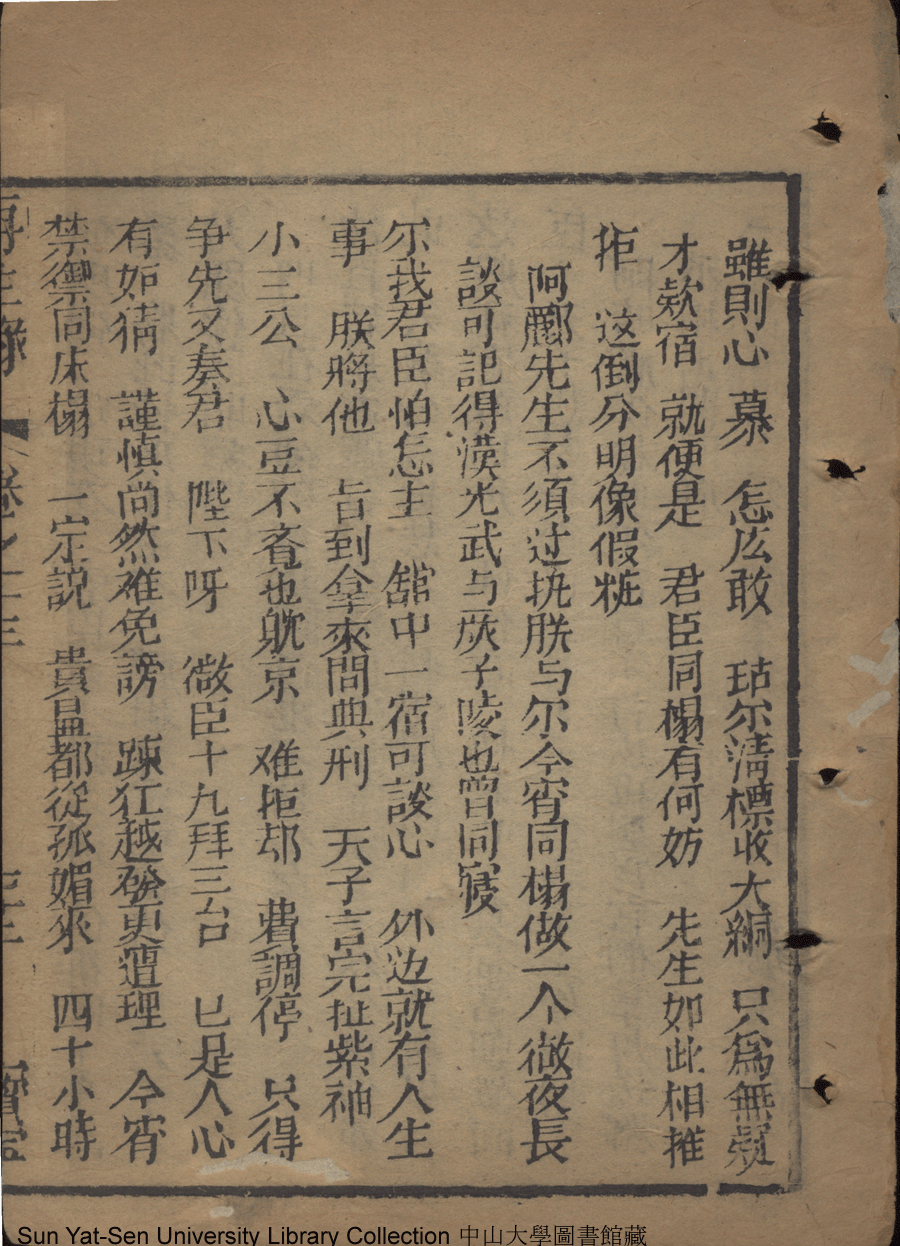 雖則心 慕 怎庅敢 玷尔清標收大綱 只爲無疑
才欵宿 就便是 君臣同榻有何妨 先生如此相推
拒 这倒分明像假粧
阿酈先生不須过执朕与尔今宵同榻做一个徹夜長
談可記得漢光武与嚴子陵也曾同寢
尔我君臣怕怎主 舘中一宿可談心 外边就有人生
事 朕將他 旨到拿來問典刑 天子言完扯紫袖
小三公 心豆不吝也躭京 难拒却 費調停 只得
争先又奏君 陛下呀 微臣十九拜三台 已是人心
有妬猜 謹慎尚然难免謗 踈狂越發更遭理 今宵
禁禦同床榻 一宗説 貴显都從孤媚來 四十小時
再生緣 卷之十三